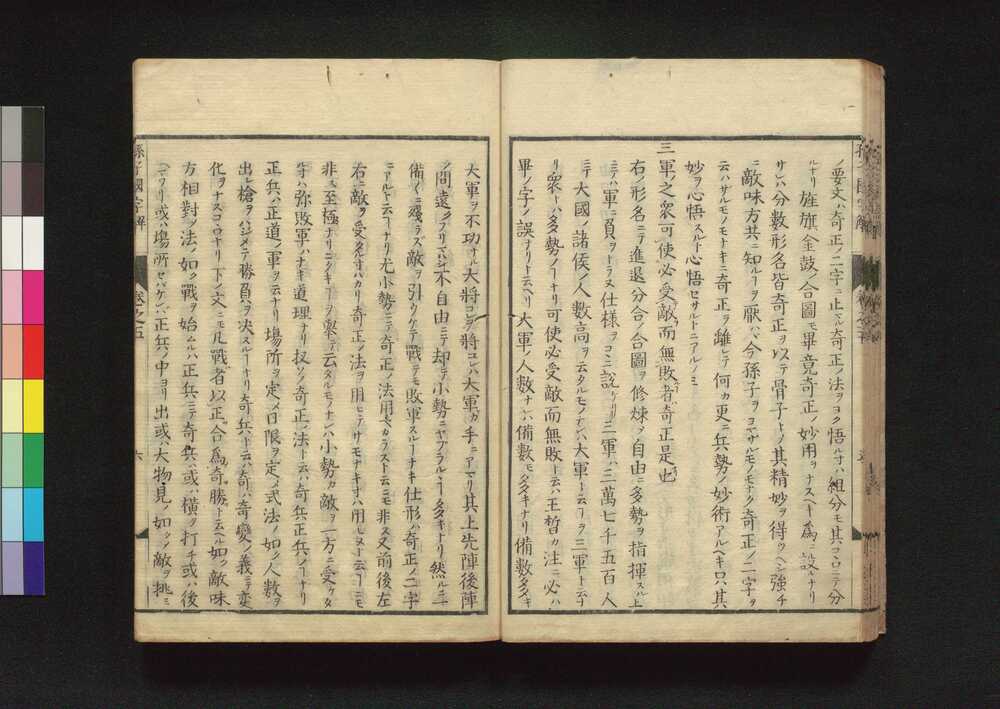 ノ要文ハ奇正ノ二字ニ止マル奇正ノ法ヲヨク悟ル寸ハ組分モ其コヽロニテ分
ルナリ旌旗金鼓ノ合圖モ畢竟奇正ノ妙用ヲナスベキ為ノ設ルナリ
サレハ分數形名皆奇正ヲ以テ骨子トメ其精妙ヲ得ツヘシ強チ
ニ敵味方共ニ知ルヲ厭ハヾ今孫子ヲヨマザルモノモナク奇正ノ二字ヲ
云ハザルモノモトキニ奇正ヲ離レテ何カ更ニ兵勢ノ妙術アルヘキ只其
妙ヲ心悟スルト心悟セサルトニアルノミ
三軍之衆可使必受敵而無敗者奇正是也
右ノ形名ニテ進退分合ノ合圖ヲ修煉メ自由ニ多勢ヲ指揮スル上
ニテハ軍ニ負ヲトラヌ仕様ヲコヽニ説ケリ三軍ハ三萬七千五百人
ニテ大國ノ諸侯ノ人數高ヲ云タルモノナレハ大軍ト云フヲ三軍ト云ナ
リ衆トハ多勢ノナリ可使必受敵而無敗ト云ハ王晢カ注ニ必ハ
畢ノ字ノ誤ナリト云ヘリ大軍ノ人數ナレハ備數モ多キナリ備數多キ
大軍ヲ不功ナル大將コレヲ將ユレハ大軍カ手ニアマリ其上先陣後陣
ノ間遠フメ不自由ニテ却テ小勢ニヤフラルヽ多キナリ然ルニ一
備ヘ〱殘ラズ敵ヲ引ウケテ戰テモ敗軍スルナキ仕形ハ奇正ノ二字
ニアルト云ナリ尤小勢ニテ奇正ノ法用ヘカラズト云ニモ非ス又前後左
右ニ敵ヲ受タル寸ハカリ奇正ノ法ヲ用ヒテサモナキ寸ハ用ヒヌト云ニモ
非ス至極ナリニクキヲ舉テ云タルモノナレハ小勢カ敵ヲ一方ニ受ケタ
寸ハ弥敗軍ハナキ道理ナリ扨ソノ奇正ノ法ト云ハ奇兵正兵ノナリ
正兵ハ正道ノ軍ヲ云ナリ場所ヲ定メ日限ヲ定メ式法ノ如ク人數ヲ
出シ槍ヲハシメテ勝負ヲ决スルナリ奇兵ト云ハ奇ハ奇變ノ義ニテ変
化ヲナスコヽロナリ下ノ文ニモ凡戰者以正合為奇勝ト云ヘル如ク敵味
方相對メ法ノ如ク戰ヲ始ムルハ正兵ニテ奇兵ハ或ハ横ヲ打チ或ハ後
ヘマワリ或ハ場所セバケレハ正兵ノ中ヨリ出或ハ大物見ノ如クメ敵ヲ挑ミ
孫子國字解
卷之五
六